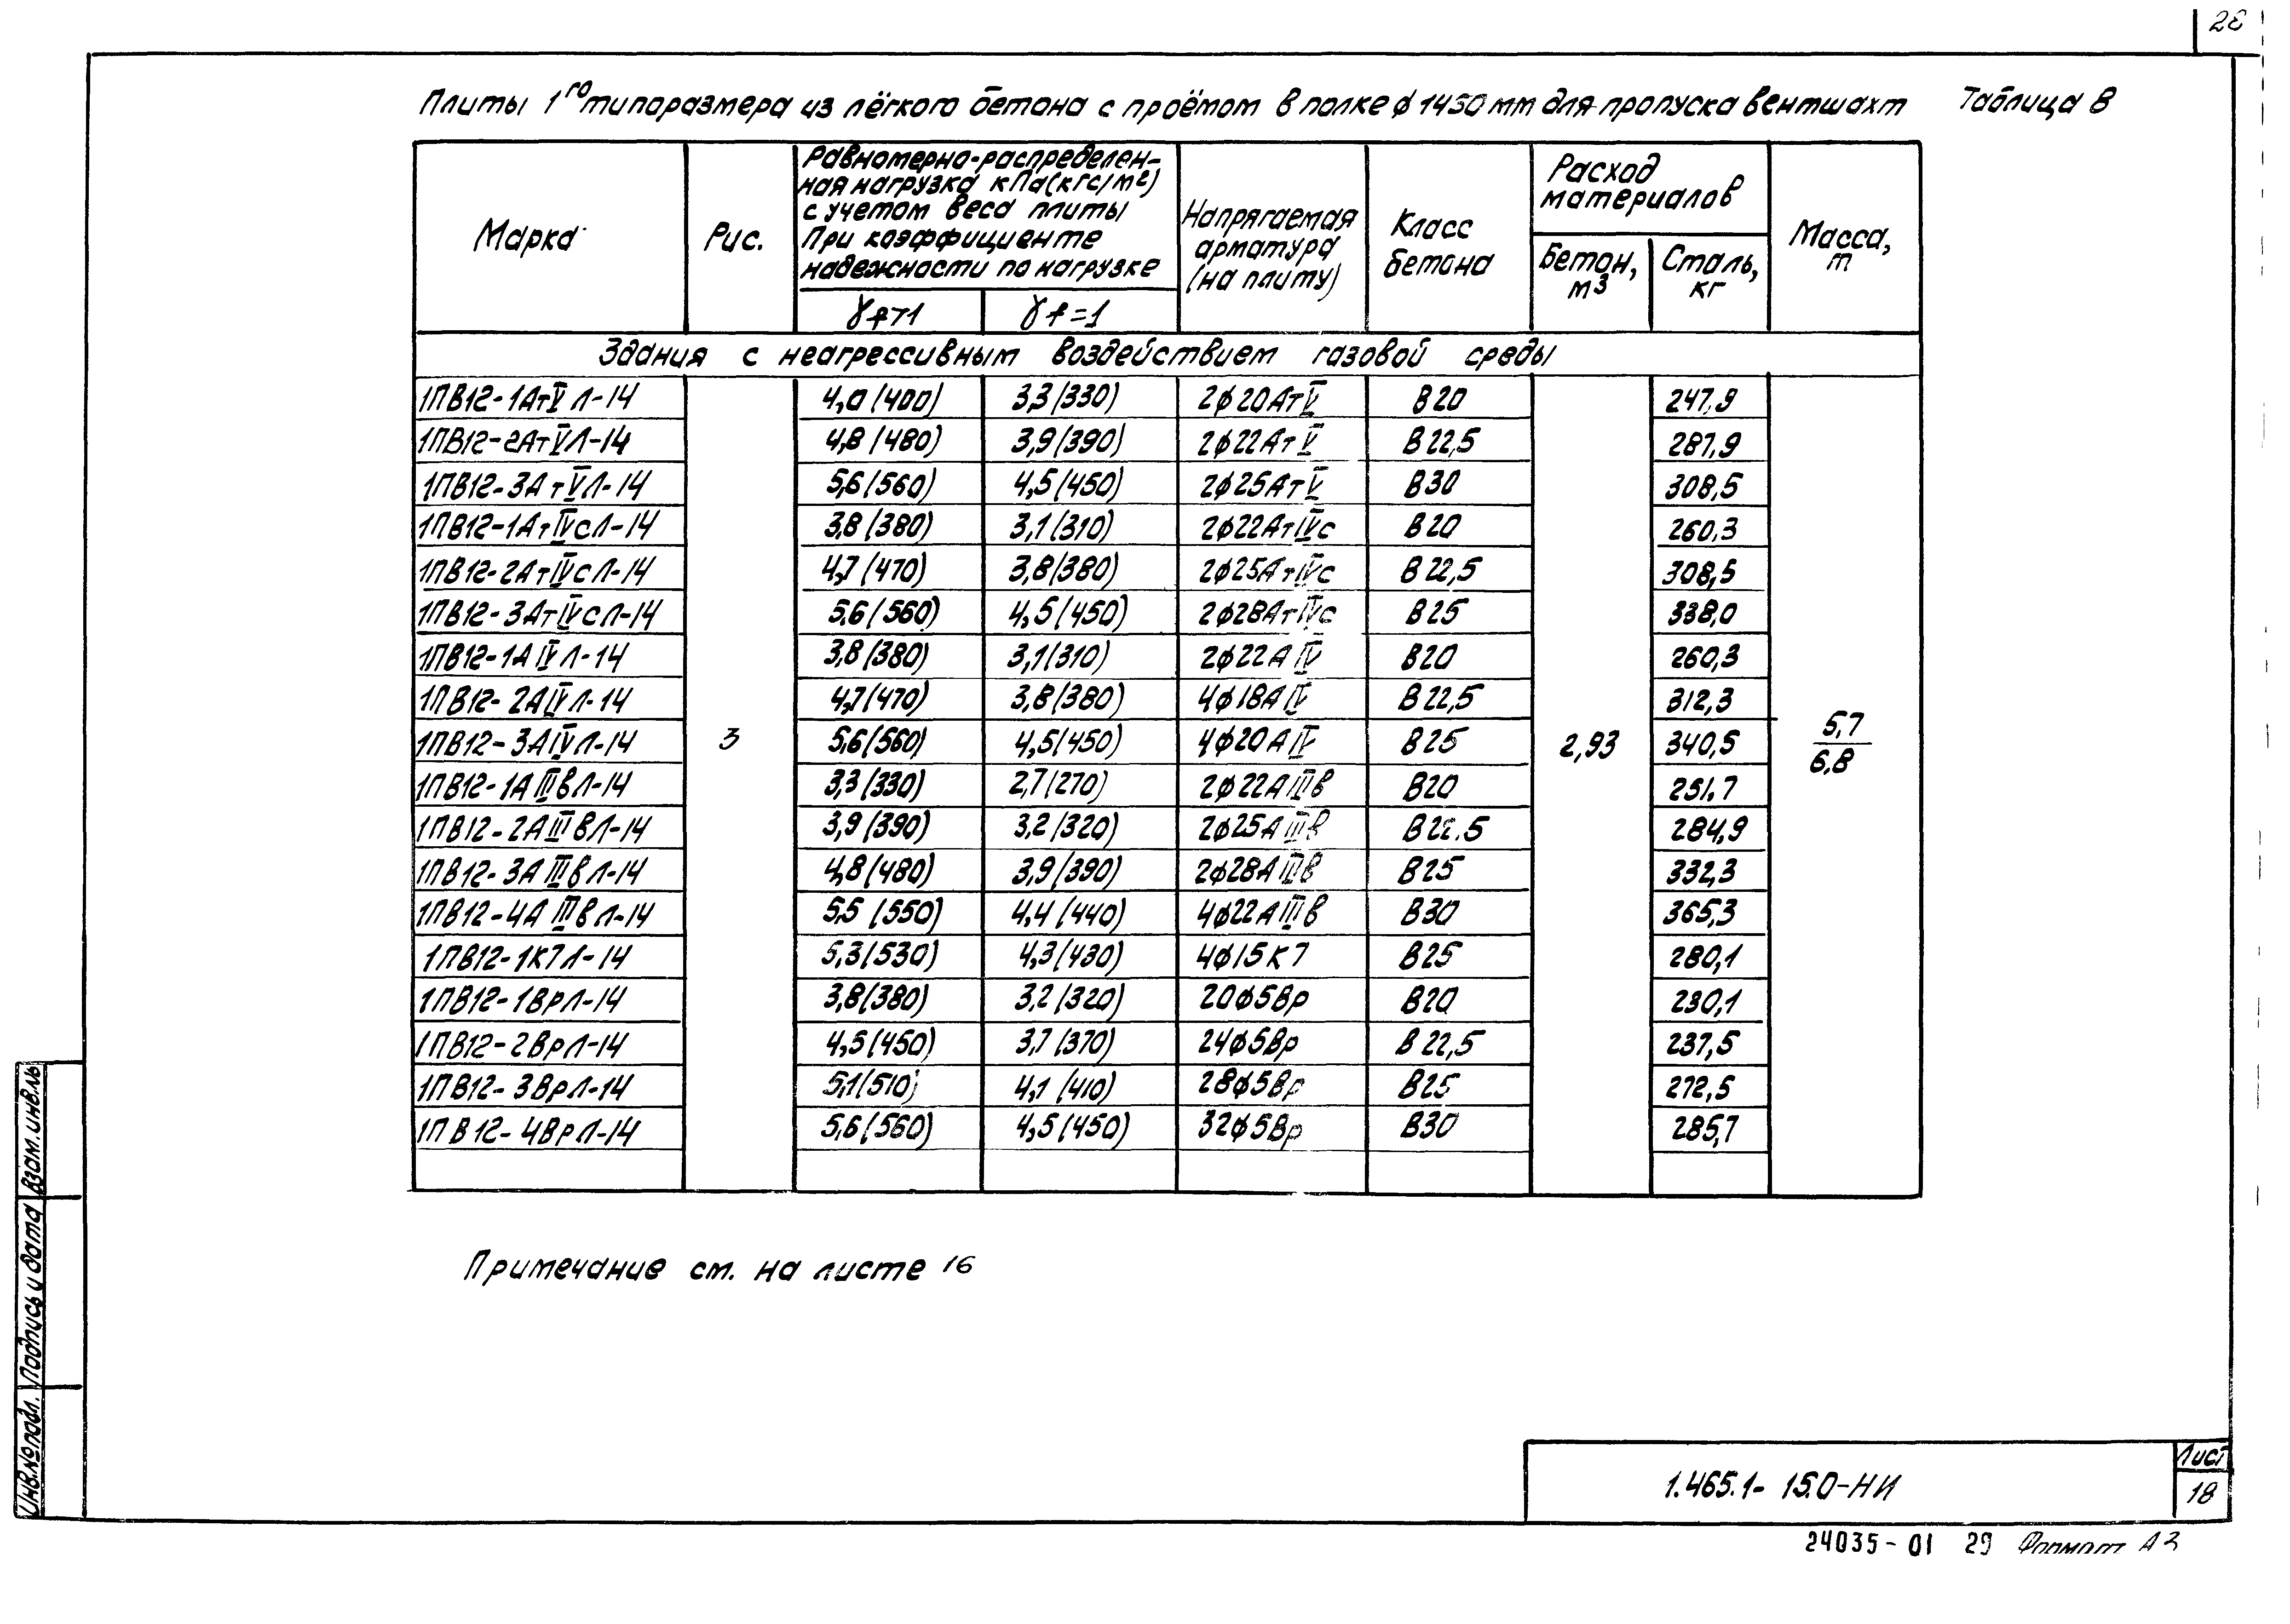 28
Плиты 1го типоразмера из лёгкого бетона с проёмом в полке ϕ 1450 мм для пропуска вентшахт Таблица 8
Марка Рис. Равномерно-распределен-
ная нагрузка кПа(кгс/м2)
с учетом веса плиты
При коэффициенте
надежности по нагрузке
γf>1 γf=1
Напрягаемая
арматура
(на плиту)
Класс
бетона
Расход
материалов
Бетон,
м3
Сталь,
кг
Масса,
т
Здания с неагрессивным воздействием газовой среды
1ПВ12-1АтVЛ-14 4,0(400) 3,3(330) 2ϕ20АтV В20 247,9
1ПВ12-2АтVЛ-14 4,8(480) 3,9(390) 2ϕ22АтV В22,5 287,9
1ПВ12-3АтVЛ-14 5,6(560) 4,5(450) 2ϕ25АтV В30 308,5
1ПВ12-1АтIVсЛ-14 3,8(380) 3,1(310) 2ϕ22АтIVс В20 260,3
1ПВ12-2АтIVсЛ-14 4,7(470) 3,8(380) 2ϕ25АтIVс В22,5 308,5
1ПВ12-3АтIVсЛ-14 5,6(560) 4,5(450) 2ϕ28АтIVс В25 338,0
1ПВ12-1АIVЛ-14 3,8(380) 3,1(310) 2ϕ22АIV В20 260,3
1ПВ12-2АIVЛ-14 4,7(470) 3,8(380) 4ϕ18АIV В22,5 312,3
1ПВ12-3АIVЛ-14 3 5,6(560) 4,5(450) 4ϕ20АIV В25 2,93 340,5 5,7/6,8
1ПВ12-1АIIIвЛ-14 3,3(330) 2,7(270) 2ϕ22АIIIв В20 251,7
1ПВ12-2АIIIвЛ-14 3,9(390) 3,2(320) 2ϕ25АIIIв В22,5 284,9
1ПВ12-3АIIIвЛ-14 4,8(480) 3,9(390) 2ϕ28АIIIв В25 332,3
1ПВ12-4АIIIвЛ-14 5,5(550) 4,4(440) 4ϕ22АIIIв В30 365,3
1ПВ12-1К7Л-14 5,3(530) 4,3(430) 4ϕ15К7 В25 280,1
1ПВ12-1ВрЛ-14 3,8(380) 3,2(320) 20ϕ5Вр В20 230,1
1ПВ12-2ВрЛ-14 4,5(450) 3,7(370) 24ϕ5Вр В22,5 237,5
1ПВ12-3ВрЛ-14 5,1(510) 4,1(410) 28ϕ5Вр В25 272,5
1ПВ12-4ВрЛ-14 5,6(560) 4,5(450) 32ϕ5Вр В30 285,7
Примечание см. на листе 16
Инв.№подл. Подпись и дата Взам.инв.№
1.465.1-15.0-НИ
Лист
18
24035-01 29 Формат А3